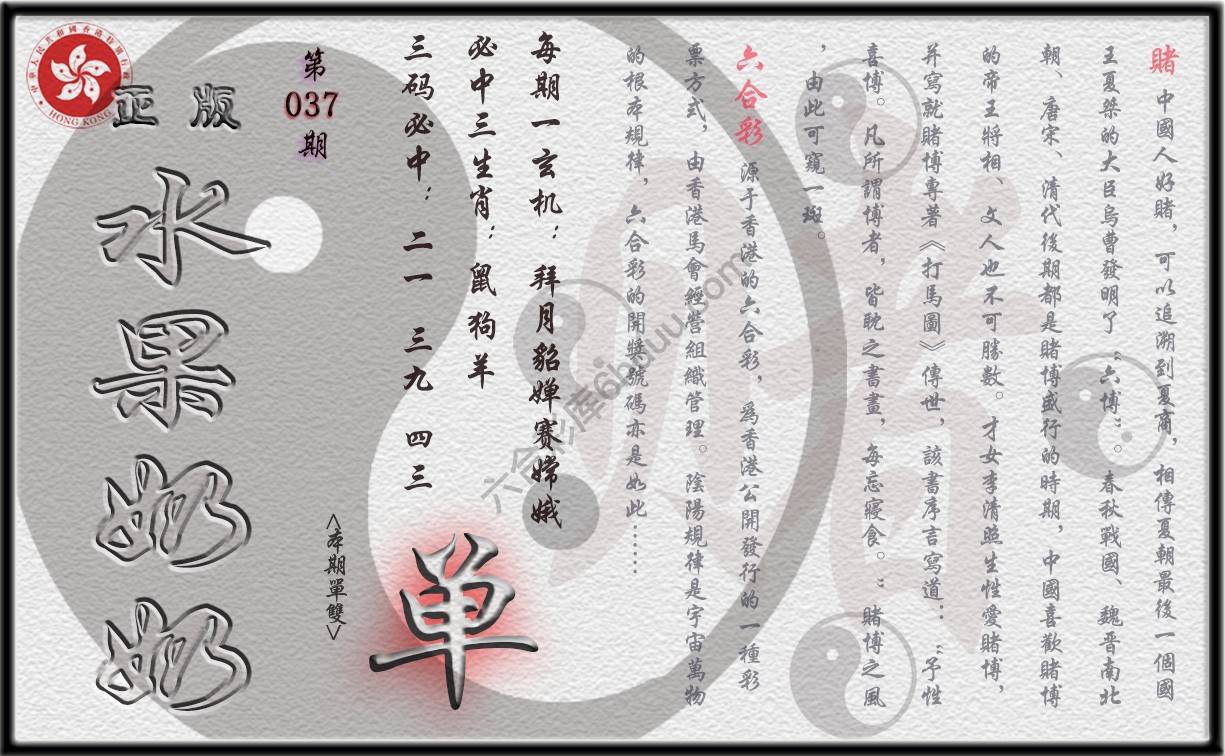 賭 中國人好賭，可以追溯到夏商，相傳夏朝最後一個國
王夏桀的大臣烏曹發明了“六博”。春秋戰國、魏晋南北
朝、唐宋、清代後期都是賭博盛行的時期，中國喜歡賭博
的帝王將相、文人也不可勝數。才女李清照生性愛賭博，
并寫就賭博專著《打馬圖》傳世，該書序言寫道：“予性
喜博。凡所謂博者，皆耽之書畫，每忘寢食。”賭博之風
，由此可窺一斑。
六合彩 源于香港的六合彩，爲香港公開發行的一種彩
票方式，由香港馬會經營組織管理。陰陽規律是宇宙萬物
的根本規律，六合彩的開獎號碼亦是如此……
每期一玄机：拜月貂婵赛嫦娥
必中三生肖：鼠狗羊
三码必中：二一 三九 四三
单
<本期單雙>
第
037
期
正版
水果奶奶
HONG KONG
六合彩库6hduu.com